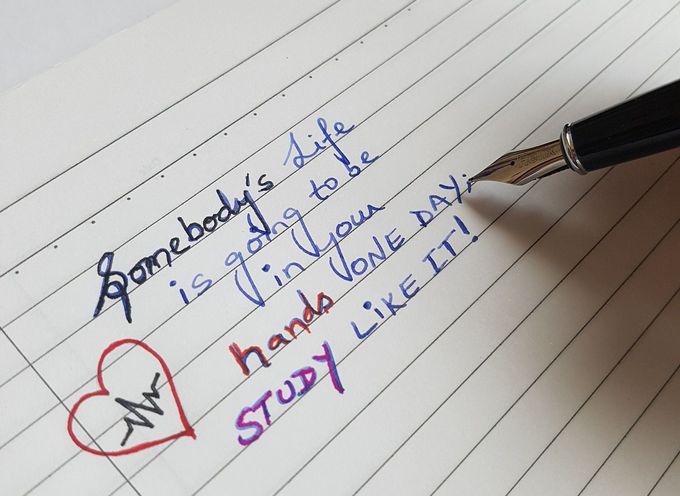 Somebody's Life
is going to be
in your
hands ONE DAY,
STUDY LIKE IT!